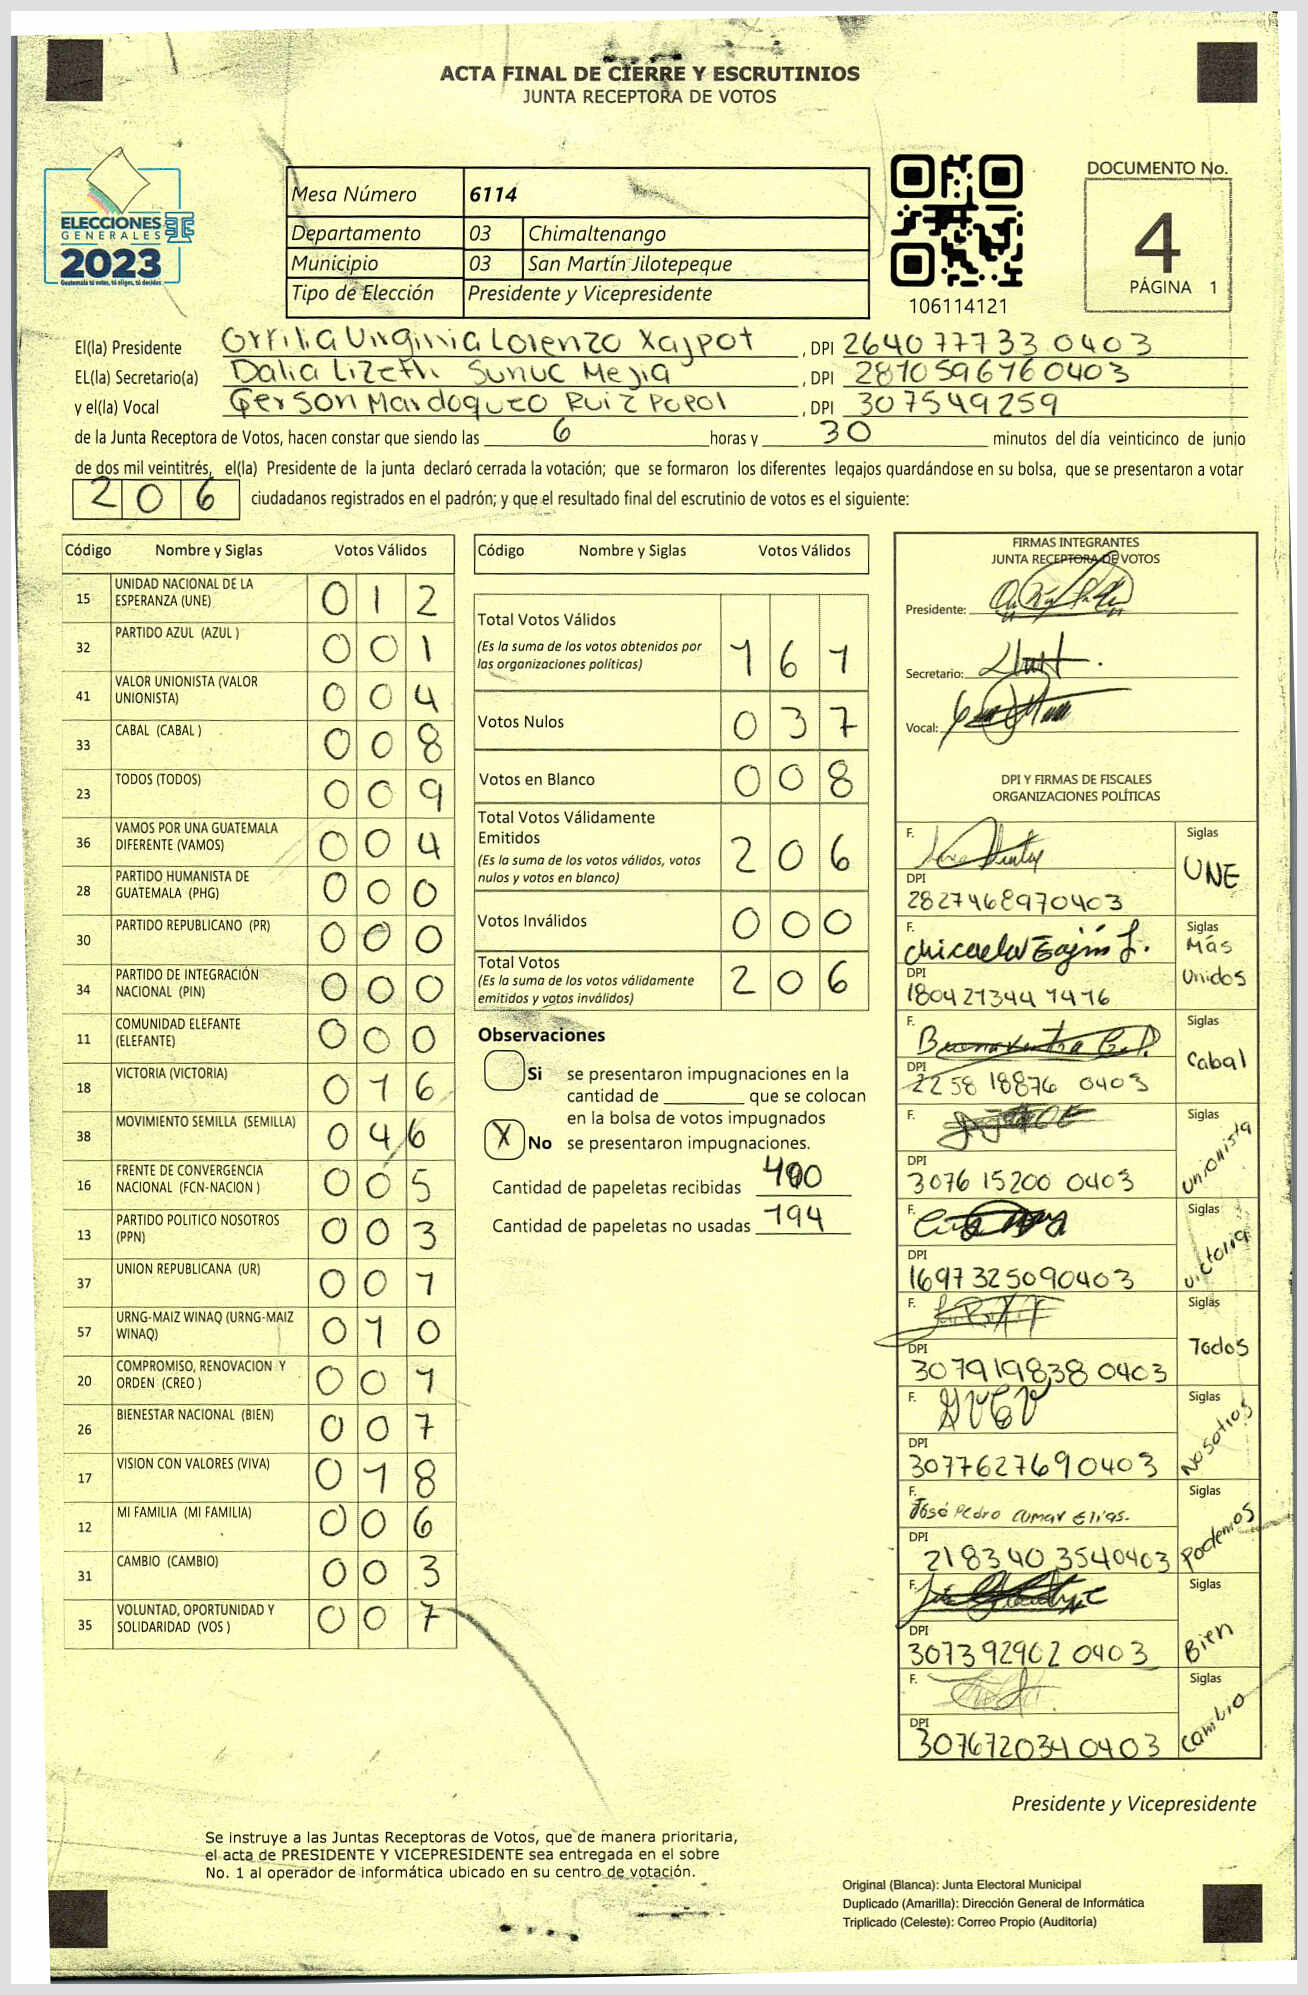 ACTA FINAL DE CIERRE Y ESCRUTINIOS
JUNTA RECEPTORA DE VOTOS
ELECCIONES
GENERALES
2023
Guatemala tú votas, tú eliges, tú decides
Mesa Número 6114
Departamento 03 Chimaltenango
Municipio 03 San Martín Jilotepeque
Tipo de Elección Presidente y Vicepresidente
106114121
DOCUMENTO No.
4
PÁGINA 1
El(la) Presidente Virginia Lorenzo Xajpot , DPI 2640777330403
EL(la) Secretario(a) Dalia Lizeth Sunuc Mejia , DPI 2870596760403
y el(la) Vocal Gerson Mardoqueo Ruiz Popol , DPI 307549259
de la Junta Receptora de Votos, hacen constar que siendo las 6 horas y 30 minutos del día veinticinco de junio
de dos mil veintitrés, el(la) Presidente de la junta declaró cerrada la votación; que se formaron los diferentes legajos quardándose en su bolsa, que se presentaron a votar
206 ciudadanos registrados en el padrón; y que el resultado final del escrutinio de votos es el siguiente:
Código Nombre y Siglas Votos Válidos
15 UNIDAD NACIONAL DE LA ESPERANZA (UNE) 012
32 PARTIDO AZUL (AZUL ) 001
41 VALOR UNIONISTA (VALOR UNIONISTA) 004
33 CABAL (CABAL ) 008
23 TODOS (TODOS) 009
36 VAMOS POR UNA GUATEMALA DIFERENTE (VAMOS) 004
28 PARTIDO HUMANISTA DE GUATEMALA (PHG) 000
30 PARTIDO REPUBLICANO (PR) 000
34 PARTIDO DE INTEGRACIÓN NACIONAL (PIN) 000
11 COMUNIDAD ELEFANTE (ELEFANTE) 000
18 VICTORIA (VICTORIA) 016
38 MOVIMIENTO SEMILLA (SEMILLA) 046
16 FRENTE DE CONVERGENCIA NACIONAL (FCN-NACION ) 005
13 PARTIDO POLITICO NOSOTROS (PPN) 003
37 UNION REPUBLICANA (UR) 001
57 URNG-MAIZ WINAQ (URNG-MAIZ WINAQ) 010
20 COMPROMISO, RENOVACION Y ORDEN (CREO ) 001
26 BIENESTAR NACIONAL (BIEN) 007
17 VISION CON VALORES (VIVA) 018
12 MI FAMILIA (MI FAMILIA) 006
31 CAMBIO (CAMBIO) 003
35 VOLUNTAD, OPORTUNIDAD Y SOLIDARIDAD (VOS ) 007
Código Nombre y Siglas Votos Válidos
Total Votos Válidos 161
(Es la suma de los votos obtenidos por
las organizaciones políticas)
Votos Nulos 037
Votos en Blanco 008
Total Votos Válidamente
Emitidos 206
(Es la suma de los votos válidos, votos
nulos y votos en blanco)
Votos Inválidos 000
Total Votos 206
(Es la suma de los votos válidamente
emitidos y votos inválidos)
Observaciones
Si se presentaron impugnaciones en la
cantidad de ________ que se colocan
en la bolsa de votos impugnados
X No se presentaron impugnaciones.
Cantidad de papeletas recibidas 400
Cantidad de papeletas no usadas 194
FIRMAS INTEGRANTES
JUNTA RECEPTORA DE VOTOS
Presidente:
Secretario:
Vocal:
DPI Y FIRMAS DE FISCALES
ORGANIZACIONES POLÍTICAS
F. Siglas
UNE
DPI
2827468970403
F. Siglas
Más
Unidos
DPI
1804273447416
F. Siglas
Cabal
DPI
2258 18876 0403
F. Siglas
Unionista
DPI
3076 15200 0403
F. Siglas
Victoria
DPI
1697325090403
F. Siglas
Todos
DPI
3079198380403
F. Siglas
Nosotros
DPI
3077627690403
F. José Pedro Cumar Elias. Siglas
Podemos
DPI
2183403540403
F. Siglas
Bien
DPI
3073929020403
F. Siglas
Cambio
DPI
3076720340403
Presidente y Vicepresidente
Se instruye a las Juntas Receptoras de Votos, que de manera prioritaria,
el acta de PRESIDENTE Y VICEPRESIDENTE sea entregada en el sobre
No. 1 al operador de informática ubicado en su centro de votación.
Original (Blanca): Junta Electoral Municipal
Duplicado (Amarilla): Dirección General de Informática
Triplicado (Celeste): Correo Propio (Auditoría)